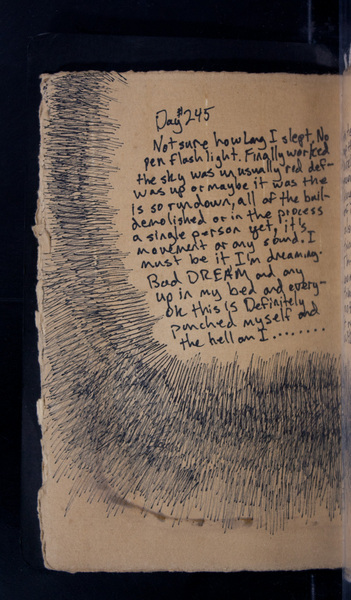 Day #245
Not sure how long I slept, No
pen flash light. Finally worked
the sky was unusually red def-
was up or maybe it was the
is so rundown, all of the buil-
demolished or in the process
a single person yet, it's
movement or any sound. I
must be it I'm dreaming.
Bad DREAM and any
up in my bed and every-
ok this is Definitely
punched myself and
the hell am I........